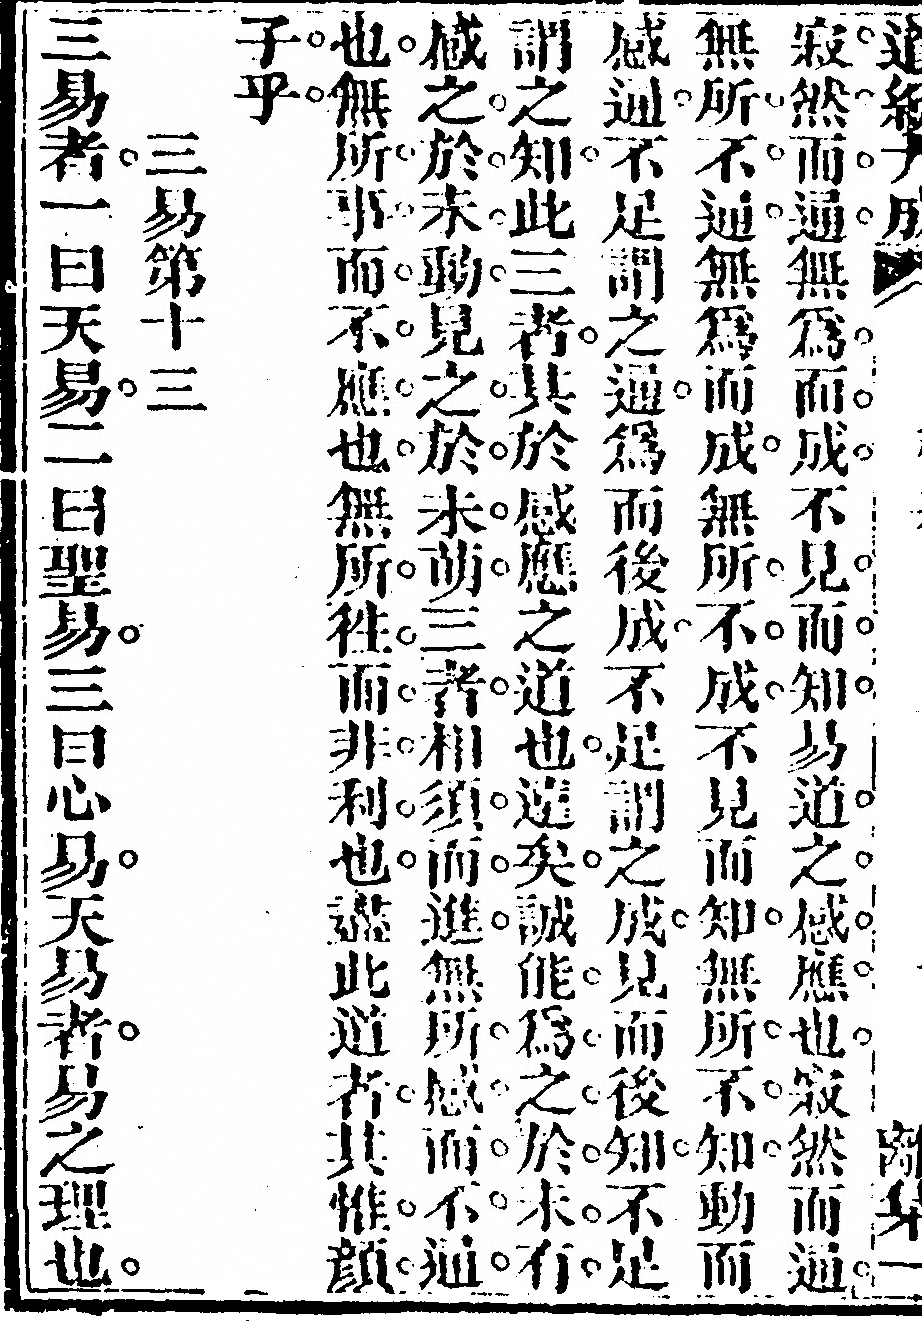 寂然而通無爲而成不見而知易道之感應也寂然而通
無所不通無爲而成無所不成不見而知無所不知動而
感通不足謂之通爲而後成不足謂之成見而後知不足
謂之知此三者其於感應之道也遠矣誠能爲之於未有
感之於未動見之於未萌三者相須而進無所感而不通
也無所事而不應也無所徃而非利也盡此道者其惟顔
子乎
三易第十三
三易者一曰天易二曰聖易三曰心易天易者易之理也